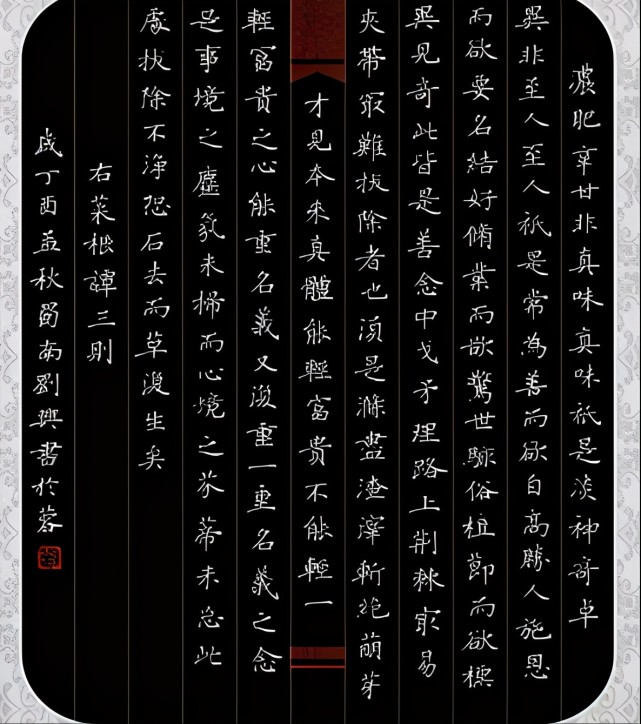 濃肥辛甘非真味真味祇是淡神奇卓
異非至人至人祇是常為善而欲自高勝人施恩
而欲要名結好脩業而欲驚世駭俗植節而欲標
異見奇此皆是善念中戈矛理路上荊棘最易
夾帶最難拔除者也須是滌盡渣滓斬絕萌芽
才見本來真體能輕富貴不能輕一
輕富貴之心能重名義又復重一重名義之念
是事境之塵氛未掃而心境之芥蒂未忘此
處拔除不淨恐石去而草復生矣
右菜根譚三則
歲丁酉孟秋蜀南劉興書於蓉